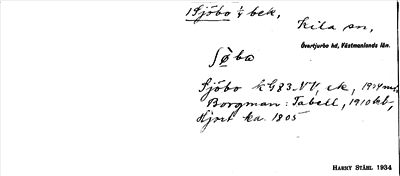 1 Sjöbo ¼ bek,
Kila sn,
Övertjurbo hd, Västmanlands län.
sø̀ba
Sjöbo kG83-VV, ek, 1934
Borgman: Tabell, 1910
Hjort ka 1805
HARRY STÅHL 1934